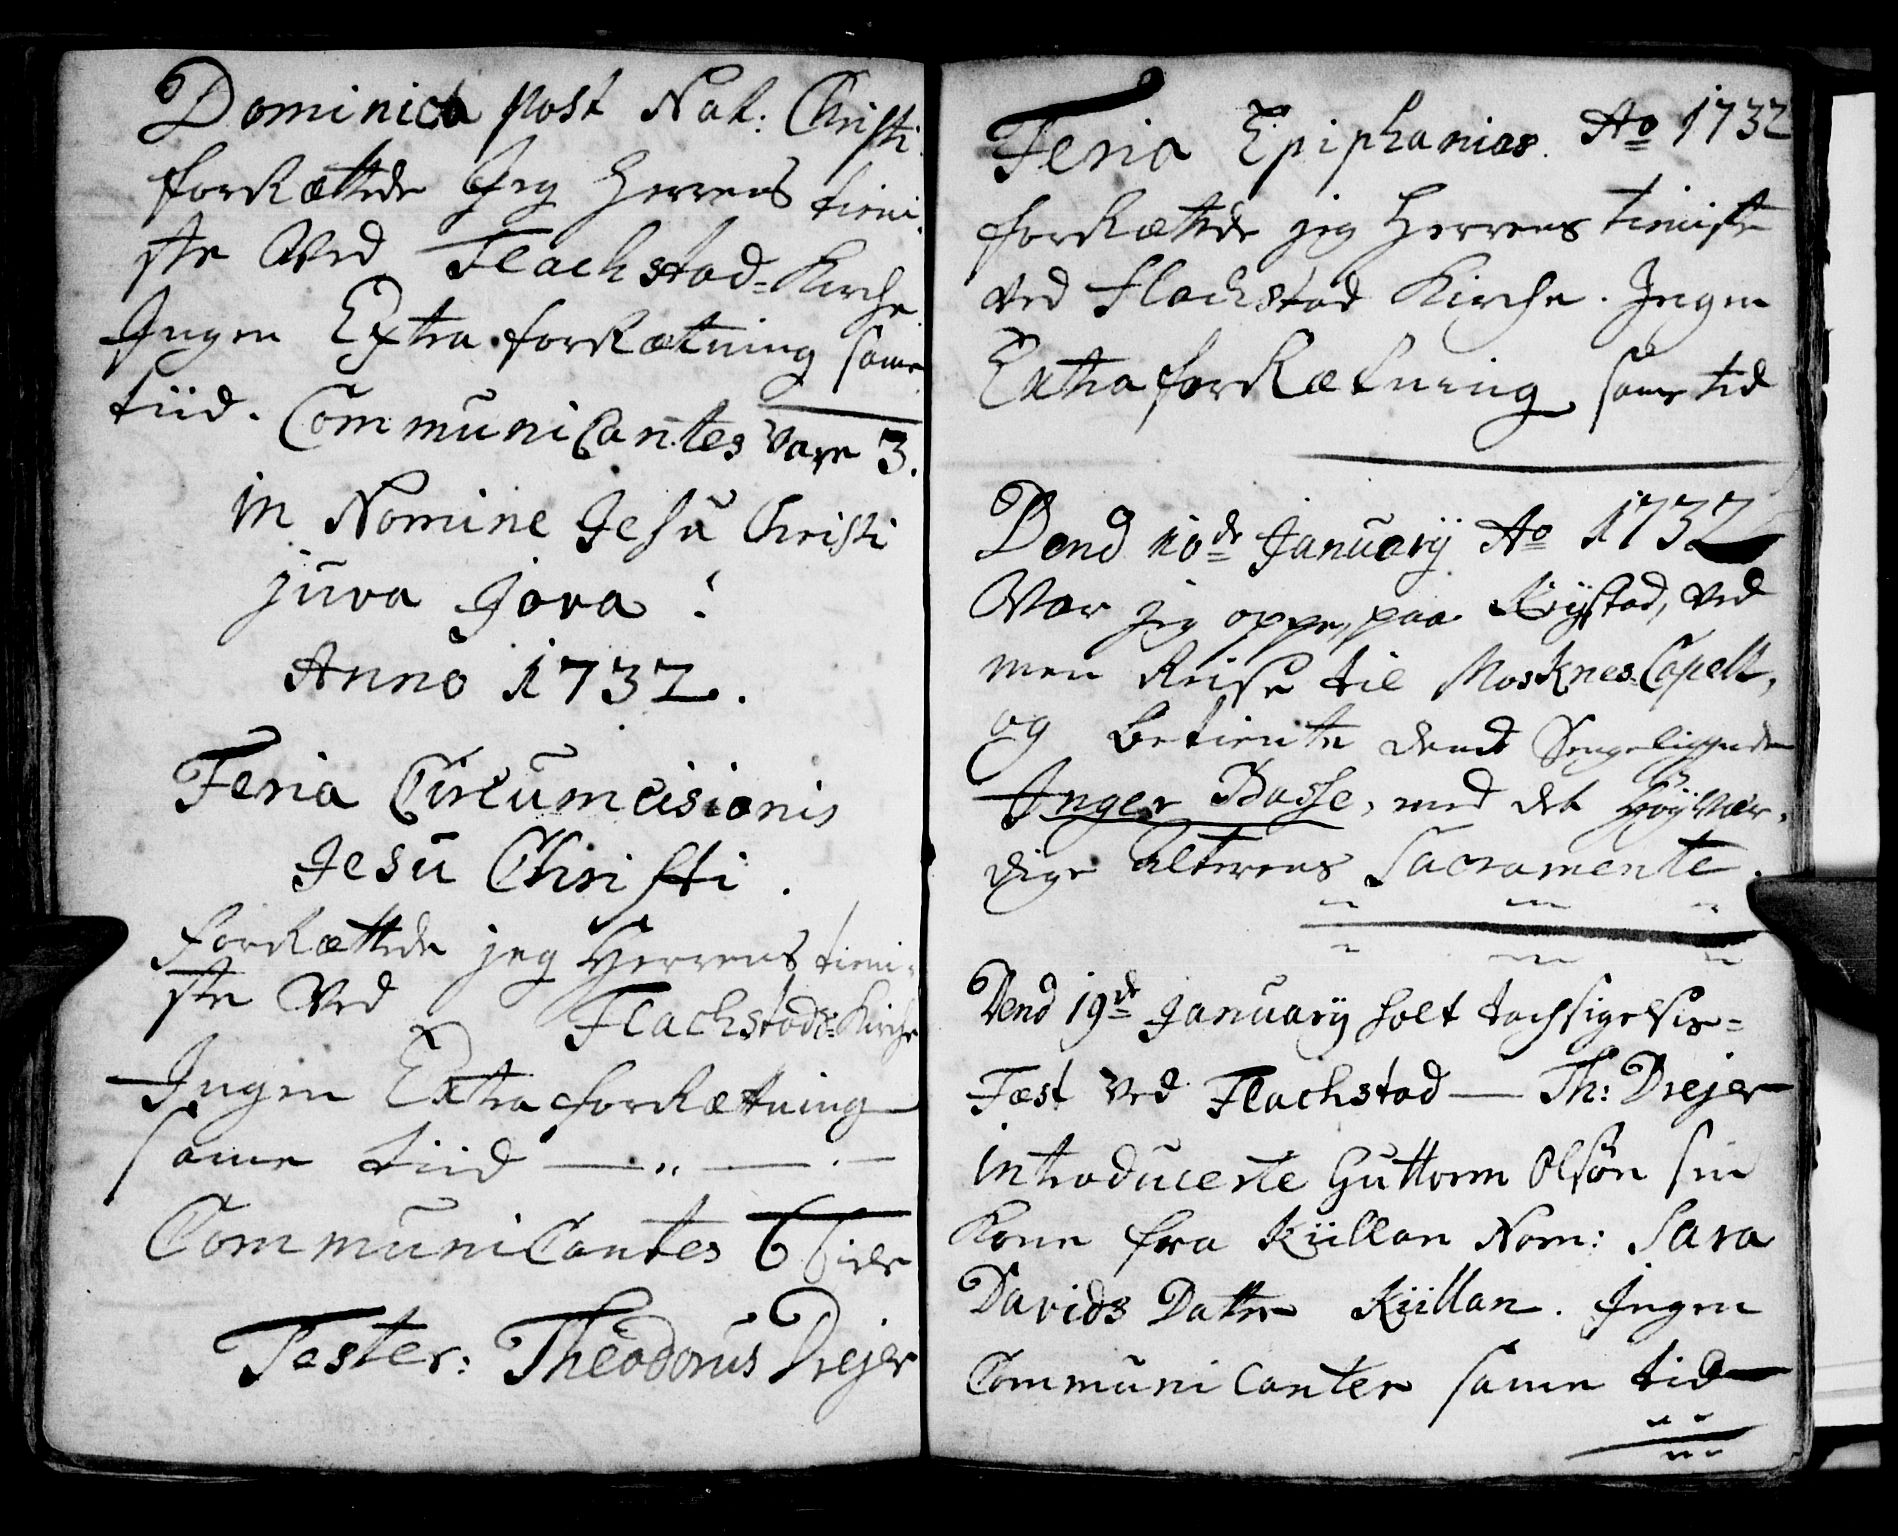 Dominica post Nat: Christi
forRættede Jeg Herrens tieni-
ste Ved Flachstad-Kirche
Ingen Extra forRætning same
tiid. CommuniCantes vare 3.
in Nomine Jesu Christi
juva Jova!
Anno 1732.
Feria Circumcisionis
Jesu Christi.
forRættede jeg Herrens tieni-
ste Ved Flachstads-Kirche
Ingen Extra forRætning
same tiid
CommuniCantes 6
Tester: Theodorus Drejer
Feria Epiphanias. Ao 1732
forRættede jeg Herrens tieniste
ved Flachstad Kirche. Ingen
Extra forRætning same tid
Dend 10de January Ao 1732
War jeg oppe paa Krystad, ved
men Reise til MosknesCapell,
og betiente dend Sengeliggende
Inger Basse, med det Høyvær-
dige Alterens Sacramente.
Dend 19de January holt tachsigelsis-
Fæst ved Flachstad — Th: Drejer
introducerte Guttorm Olsøn sin
Kone fra Küllan Nom: Sara
Davids Datter Küllan. Ingen
Communicanter same tid